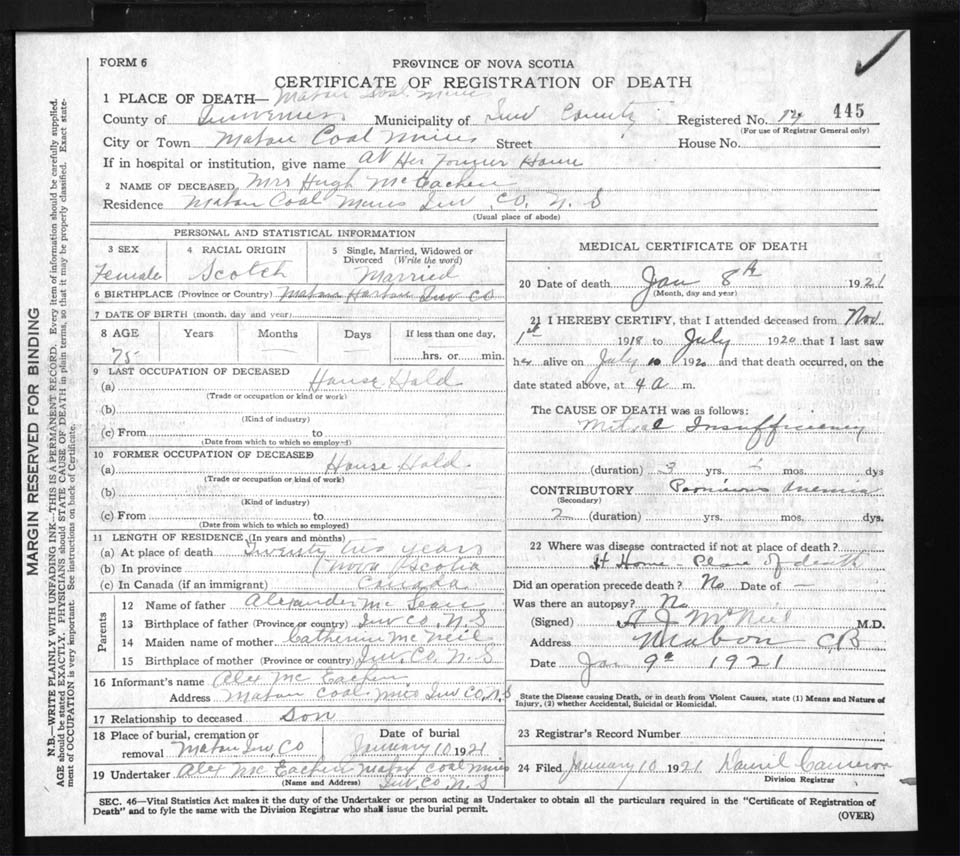 FORM 6
PROVINCE OF NOVA SCOTIA
CERTIFICATE OF REGISTRATION OF DEATH
1 PLACE OF DEATH— Mabou Coal Mines
County of Inverness Municipality of Inv County Registered No. 445
(For use of Registrar General only)
City or Town Mabou Coal Mines Street House No.
If in hospital or institution, give name At Her Former Home
2 NAME OF DECEASED Mrs Hugh McEachen
Residence Mabou Coal Mines Inv. Co. N. S
(Usual place of abode)
PERSONAL AND STATISTICAL INFORMATION
3 SEX 4 RACIAL ORIGIN 5 Single, Married, Widowed or Divorced (Write the word)
Female Scotch Married
6 BIRTHPLACE (Province or Country) Mabou Harbour Inv Co
7 DATE OF BIRTH (month, day and year)
8 AGE Years Months Days If less than one day,
75 hrs. or min.
9 LAST OCCUPATION OF DECEASED
(a) House Hold
(Trade or occupation or kind or work)
(b)
(Kind of industry)
(c) From to
(Date from which to which so employed)
10 FORMER OCCUPATION OF DECEASED
(a) House Hold
(Trade or occupation or kind of work)
(b)
(Kind of industry)
(c) From to
(Date from which to which so employed)
11 LENGTH OF RESIDENCE (In years and months)
(a) At place of death Twenty two years
(b) In province Nova Scotia
(c) In Canada (if an immigrant) Canada
Parents
12 Name of father Alexander McLean
13 Birthplace of father (Province or country) Inv Co. N. S
14 Maiden name of mother Catherine McNeil
15 Birthplace of mother (Province or country) Inv. Co. N. S
16 Informant's name Alex McEachen
Address Mabou Coal Mines Inv Co, N, S
17 Relationship to deceased Son
18 Place of burial, cremation or removal Mabou Inv, Co
Date of burial January 10 1921
19 Undertaker Alex McEachen Mabou Coal Mines
(Name and Address) Inv, Co, N. S
MEDICAL CERTIFICATE OF DEATH
20 Date of death Jan 8th 1921
(Month, day and year)
21 I HEREBY CERTIFY, that I attended deceased from Nov
1st 1918 to July 1920 that I last saw
her alive on July 10 1920 and that death occurred, on the
date stated above, at 4 a m.
The CAUSE OF DEATH was as follows:
Mitral Insufficiency
(duration) 3 yrs. mos. dys
CONTRIBUTORY Pernicious Anemia
(Secondary)
2 (duration) yrs. mos. dys.
22 Where was disease contracted if not at place of death?
At Home - Place of death
Did an operation precede death? No Date of —
Was there an autopsy? No
(Signed) A J McNeil M.D.
Address Mabou CB
Date Jan 9th 1921
State the Disease causing Death, or in death from Violent Causes, state (1) Means and Nature of
Injury, (2) whether Accidental, Suicidal or Homicidal.
23 Registrar's Record Number
24 Filed January 10 1921 Daniel Cameron
Division Registrar
SEC. 46—Vital Statistics Act makes it the duty of the Undertaker or person acting as Undertaker to obtain all the particulars required in the "Certificate of Registration of
Death" and to fyle the same with the Division Registrar who shall issue the burial permit.
(OVER)
MARGIN RESERVED FOR BINDING
N.B.—WRITE PLAINLY WITH UNFADING INK—THIS IS A PERMANENT RECORD. Every item of information should be carefully supplied.
AGE should be stated EXACTLY. PHYSICIANS should STATE CAUSE OF DEATH in plain terms, so that it may be properly classified. Exact state-
ment of OCCUPATION is very important. See instructions on back of Certificate.